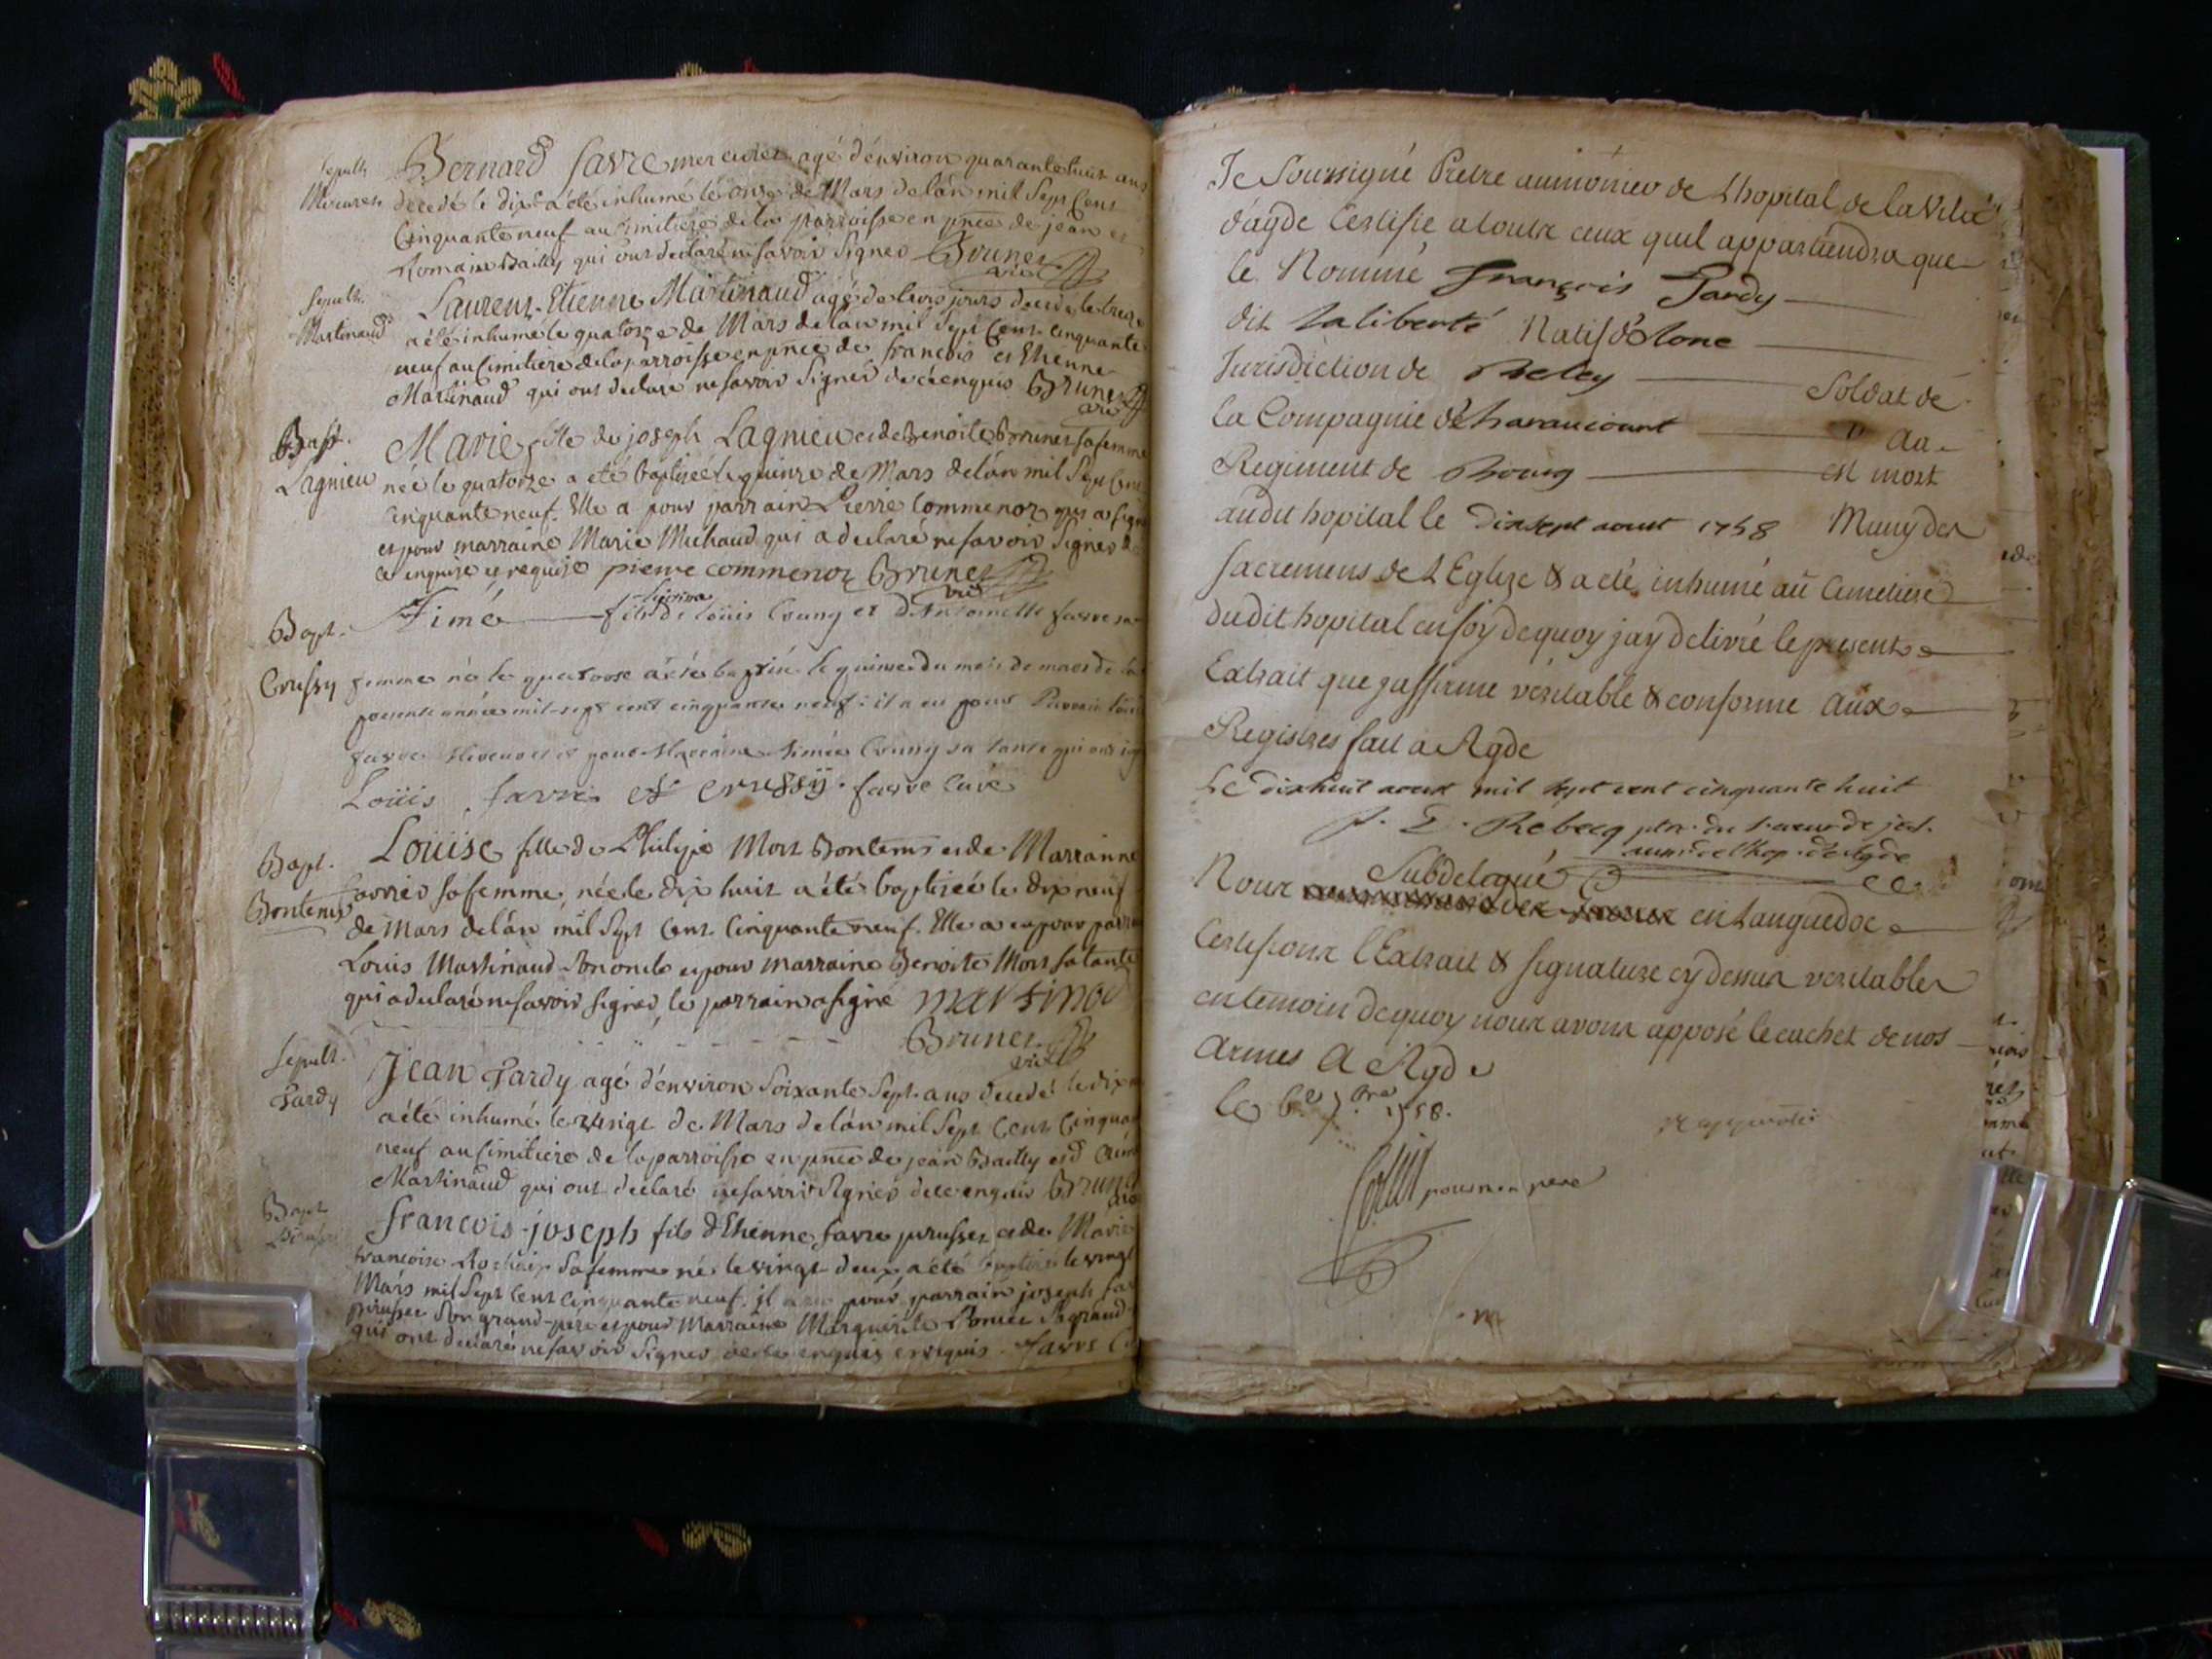 Sepult.
Mercurer
Bernard favre mercurer agé d'environ quarante huit ans
decedé le dix a été inhumé le onze de Mars de l'an mil Sept Cent
Cinquante neuf au Cimitiere de la parroisse en pnce de jean et
Romain Bailly qui ont declaré ne savoir Signer Brunet
vic
Sepult.
Martinaud
Laurent-Etienne Martinaud agé de trois jours decedé le treze
a été inhumé le quatorze de Mars de l'an mil Sept Cent Cinquante
neuf au Cimitiere de la parroisse en pnce de francois et Etienne
Martinaud qui ont declaré ne savoir Signer de ce enquis Brunet
vic
Bapt.
Lagnieu
Marie fille de joseph Lagnieu et de Benoite Brunet sa femme
née le quatorze a été baptiseé le quinze de Mars de l'an mil Sept Cent
Cinquante neuf. Elle a pour parrain Pierre Commenor qui a signé
et pour marraine Marie Michaud qui a declaré ne savoir Signer de
ce enquise et requise pierre commenor Brunet
vic
Bapt.
Crussy
Aimé fils de Loüis Crussy et d'Antoinette favre sa
femme né le quatorse a été baptisé le quinse du mois de mars de la
presente année mil-sept cent cinquante neuf: il a eu pour Parrain Loüis
favre et pour Marraine Aimée Crussy sa tante qui ont signé
Loüis favre et crussÿ. favre curé
Bapt.
Bontems
Loüise fille de Philipe Mort Bontems et de Marianne
favrer sa femme, née le dix huit a été baptiseé le dix neuf
de Mars de l'an mil Sept Cent Cinquante neuf. Elle a eu pour parrain
Louis Martinaud Son oncle et pour marraine Benoite Mort sa tante
qui a declaré ne savoir signer, le parrain a signé martinod
Brunet
vic
Sepult.
Pardy
Jean Pardy agé d'environ Soixante Sept ans decedé le dix
a été inhumé le vingt de Mars de l'an mil Sept Cent Cinquante
neuf au Cimitiere de la parroisse en pnce de jean Bailly et d'
Martinaud qui ont declaré ne savoir Signer de ce enquis Brunet
vic
Bapt.
francois-joseph fils d'Etienne favre perusset et de Marie
francoise sa femme né le vingt deux, a été baptisé le vingt
Mars mil Sept Cent Cinquante neuf. il a eu pour parrain joseph
Son grand-pere et pour Marraine Marguerite
qui ont declaré ne savoir Signer de ce enquis et requis. favre
Je Soussigné Pretre aumonier de L'hopital de la Ville
d'agde Certifie a toutx ceux quil appartiendra que
le Nommé françois Pardy
dit Laliberté Natif d'
Jurisdiction de Beley Soldat de
la Compagnie d'haraucourt Au
Regiment de est mort
audit hopital le dixsept aout 1758 Muny des
sacremens de L'Eglize & a eté inhumé au Cimetiere
dudit hopital en foy de quoy jay delivré le present
Extrait que jaffirme veritable & conforme aux
Registres fait a Agde
Le dixhuit aout mil sept cent cinquante huit
Rebecq ptre. du
aum. de l'hop. d'Agde
Subdelegué
Nous en Languedoc
Certifions l'Extrait & signature cy dessus veritables
en temoin dequoy nous avons apposé le cachet de nos
armes A Agde
le 6e 7bre 1758.
pour mon pere